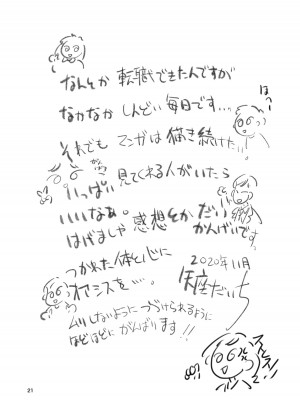 なんとか転職できたんですが
はっ
なかなかしんどい毎日です...
それでもマンガは描き続けたい!
いっぱい見てくれる人がいたら
いいなぁ。感想とかだい
かんげいです。
はげましや
つかれた体と心に
オアシスを....。
2020年11月
ムリしないようにつづけられるように
ほどほどにがんばります!!
21